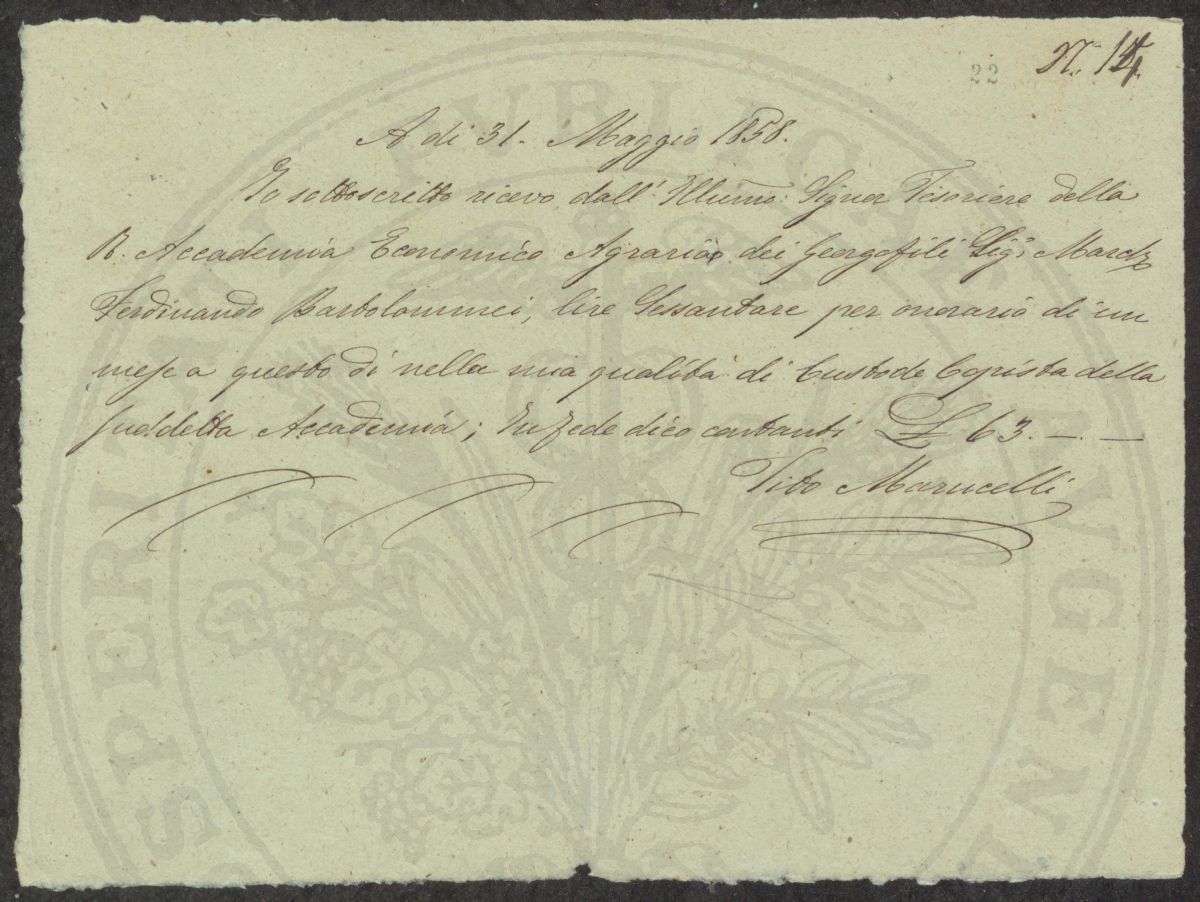 22
N.° 14.
A di 31. Maggio 1858.
Io sottoscritto ricevo dall' Illmo: Signor Tesoriere della
R. Accademia Economico Agraria dei Georgofili Sigr. March.
Ferdinando Bartolommei, lire Sessantatre per onorario di un
mese a questo dì nella mia qualità di Custode Copista della
sud.detta Accademia; In fede dico contanti £ 63. —. —
Tito Marucelli
PROSPERITATI PVBLICAE AVGENDAE